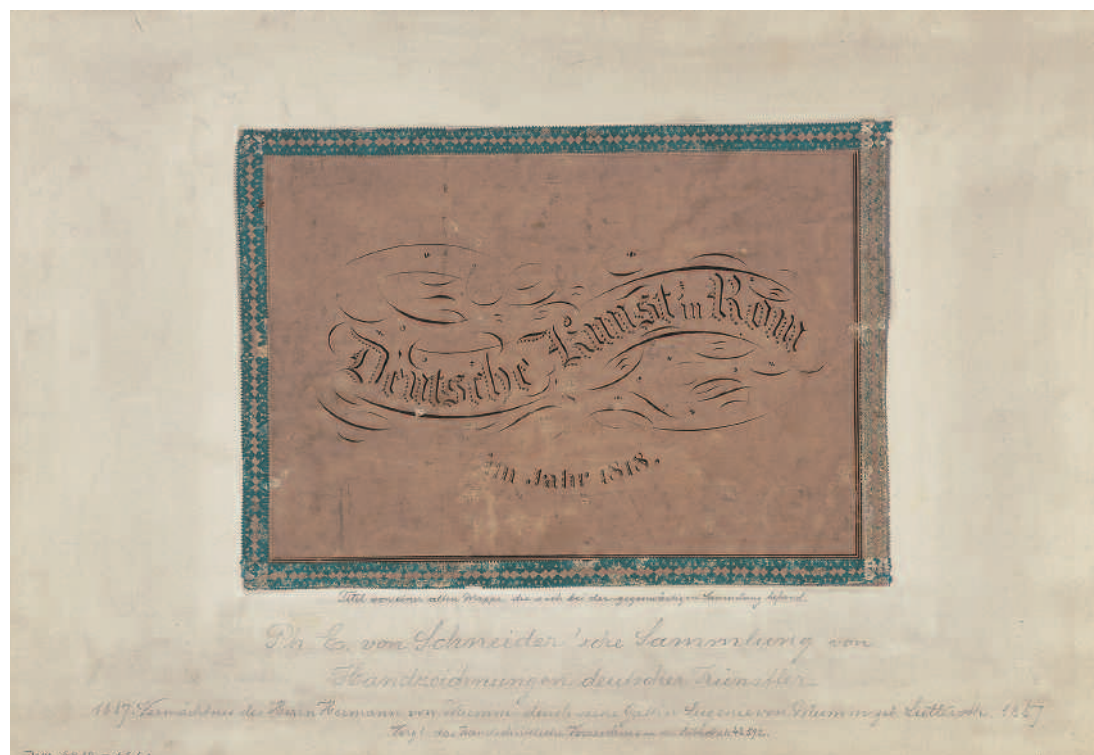 Deutsche Kunst in Rom
im Jahr 1818.
Titel von einer alten Mappe, die sich bei der gegenwärtigen Sammlung befand.
Ph. E. von Schneider'sche Sammlung von
Handzeichnungen deutscher Künstler
1887. Vermächtnis des Herrn Hermann von Mumm durch seine Gattin Eugenie von Mumm geb. Lutteroth. 1887
Vergl. das handschriftliche